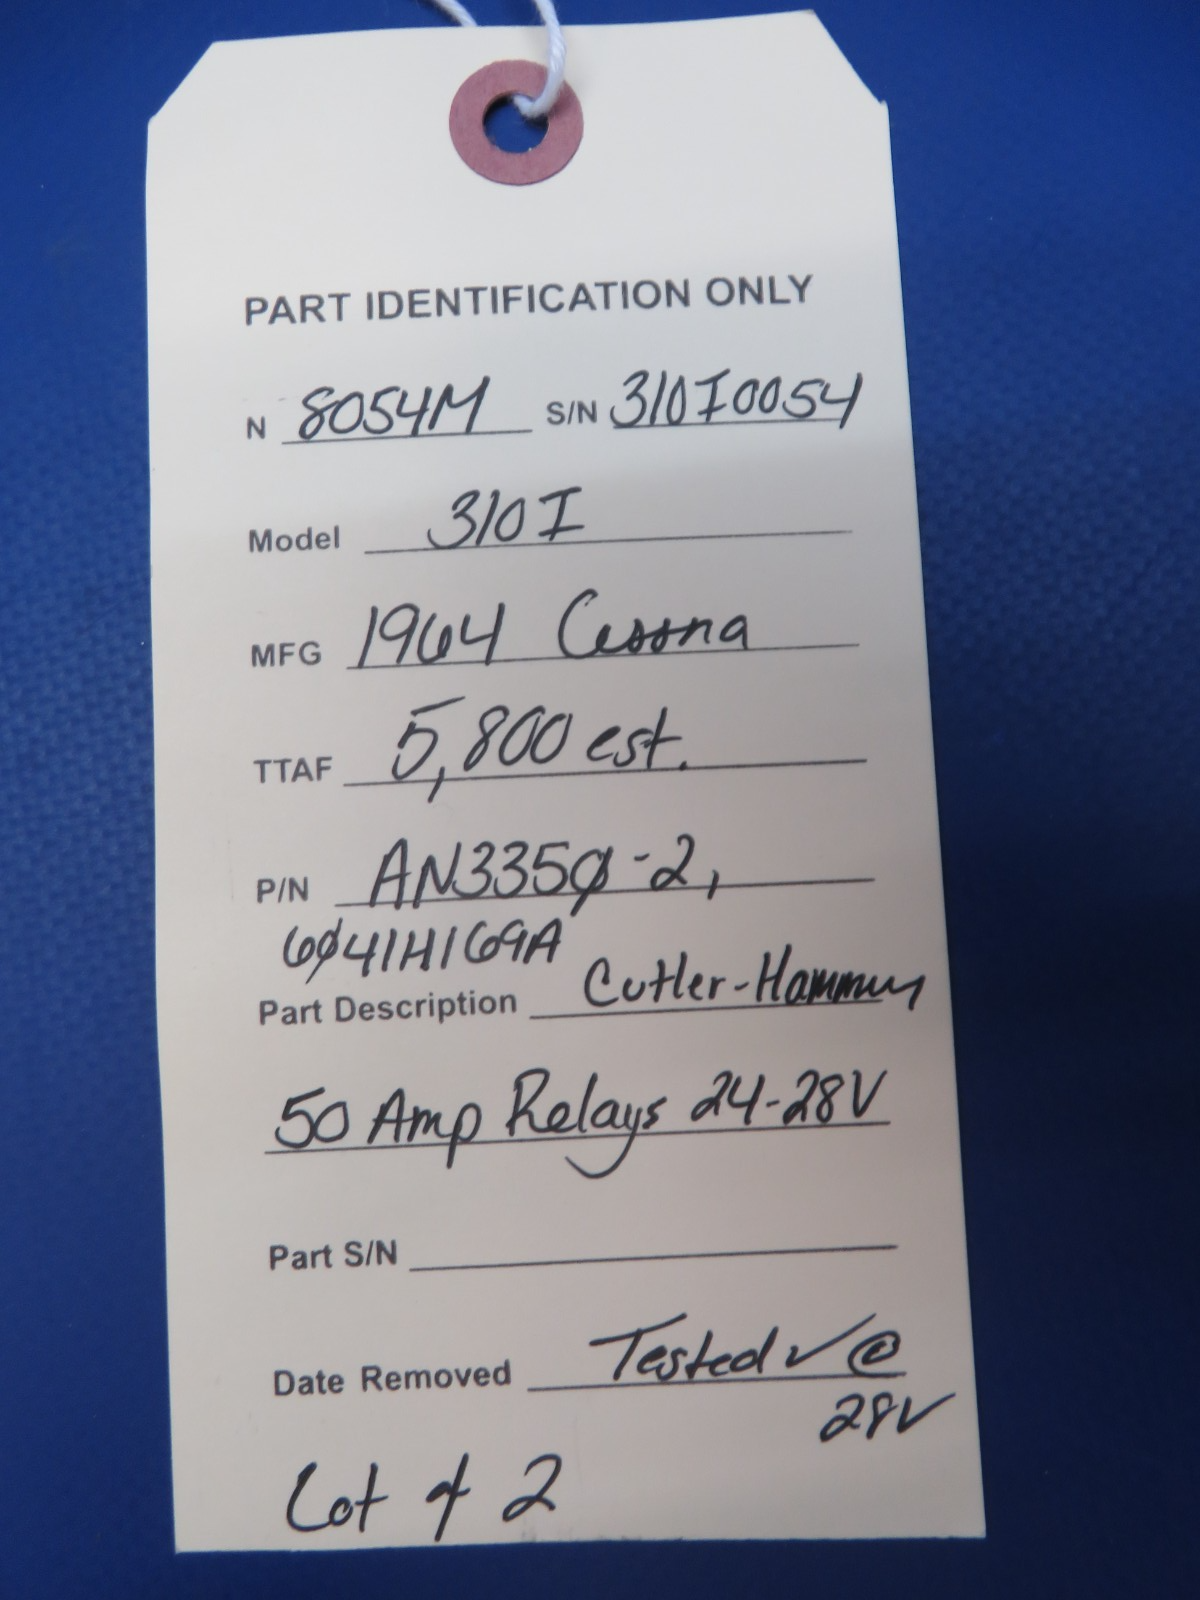 PART IDENTIFICATION ONLY
N 8054M S/N 310I0054
Model 310I
MFG 1964 Cessna
TTAF 5,800 est.
P/N AN335Ø-2,
6Ø41H169A
Part Description Cutler-Hammer
50 Amp Relays 24-28V
Part S/N
Date Removed Tested ✓ @
28V
Lot of 2